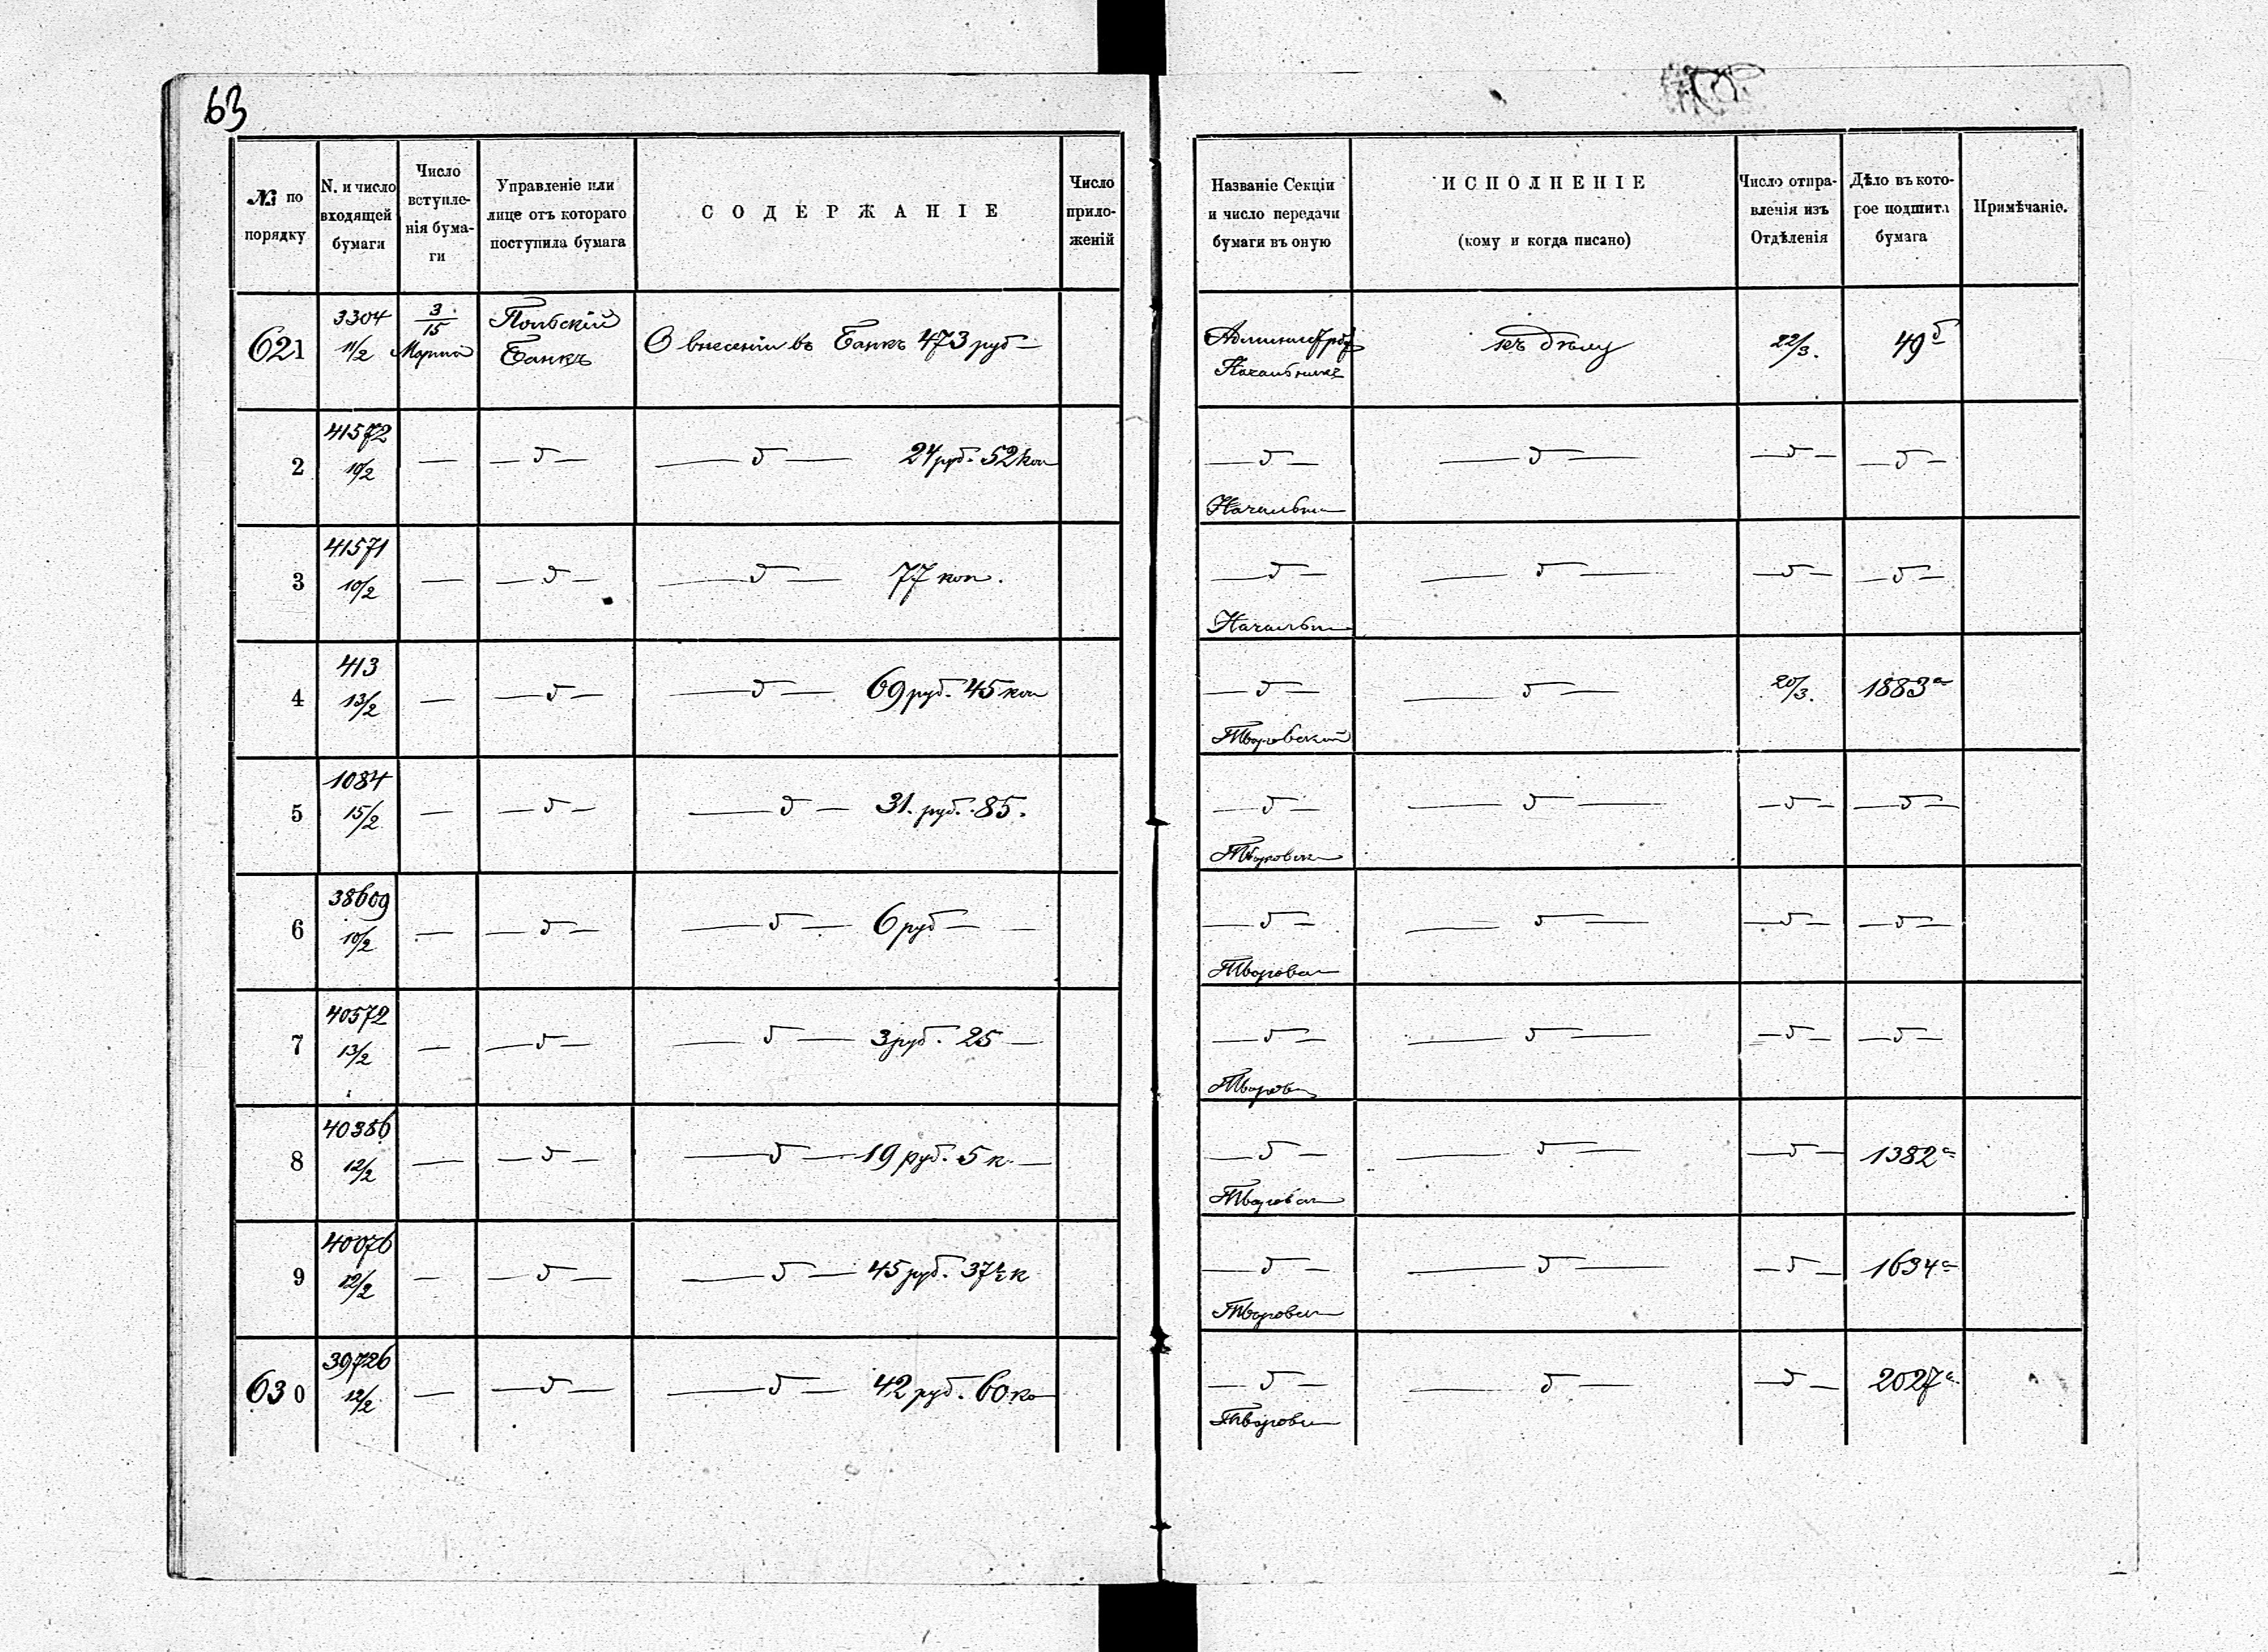 63
№ по порядку
N. и число входящей бумаги
Число вступленія бумаги
Управленіе или лице отъ котораго поступила бумага
СОДЕРЖАНІЕ
Число приложеній
Названіе Секціи и число передачи бумаги въ оную
ИСПОЛНЕНІЕ
(кому и когда писано)
Число отправленія изъ Отдѣленія
Дѣло въ которое подшита бумага
Примѣчаніе.
621 3304 11/2 3/15 Марта Польскій Банкъ О внесеніи въ Банкъ 473 руб — къ дѣлу 22/3. 49 б
2 41572 10/2 — — — 24 руб. 52 коп
3 41571 10/2 — — — 77 коп.
4 413 13/2 — — — 69 руб. 45 коп 20/3. 1883 а
5 1084 15/2 — — — 31. руб. 85.
6 38609 10/2 — — — 6 руб —
7 40572 13/2 — — — 3 руб. 25 —
8 40386 12/2 — — — 19 руб. 5 к. — 1382 а
9 40076 12/2 — — — 45 руб. 37½ к 1634 а
630 39726 12/2 — — — 42 руб. 60 ко 2027 а.